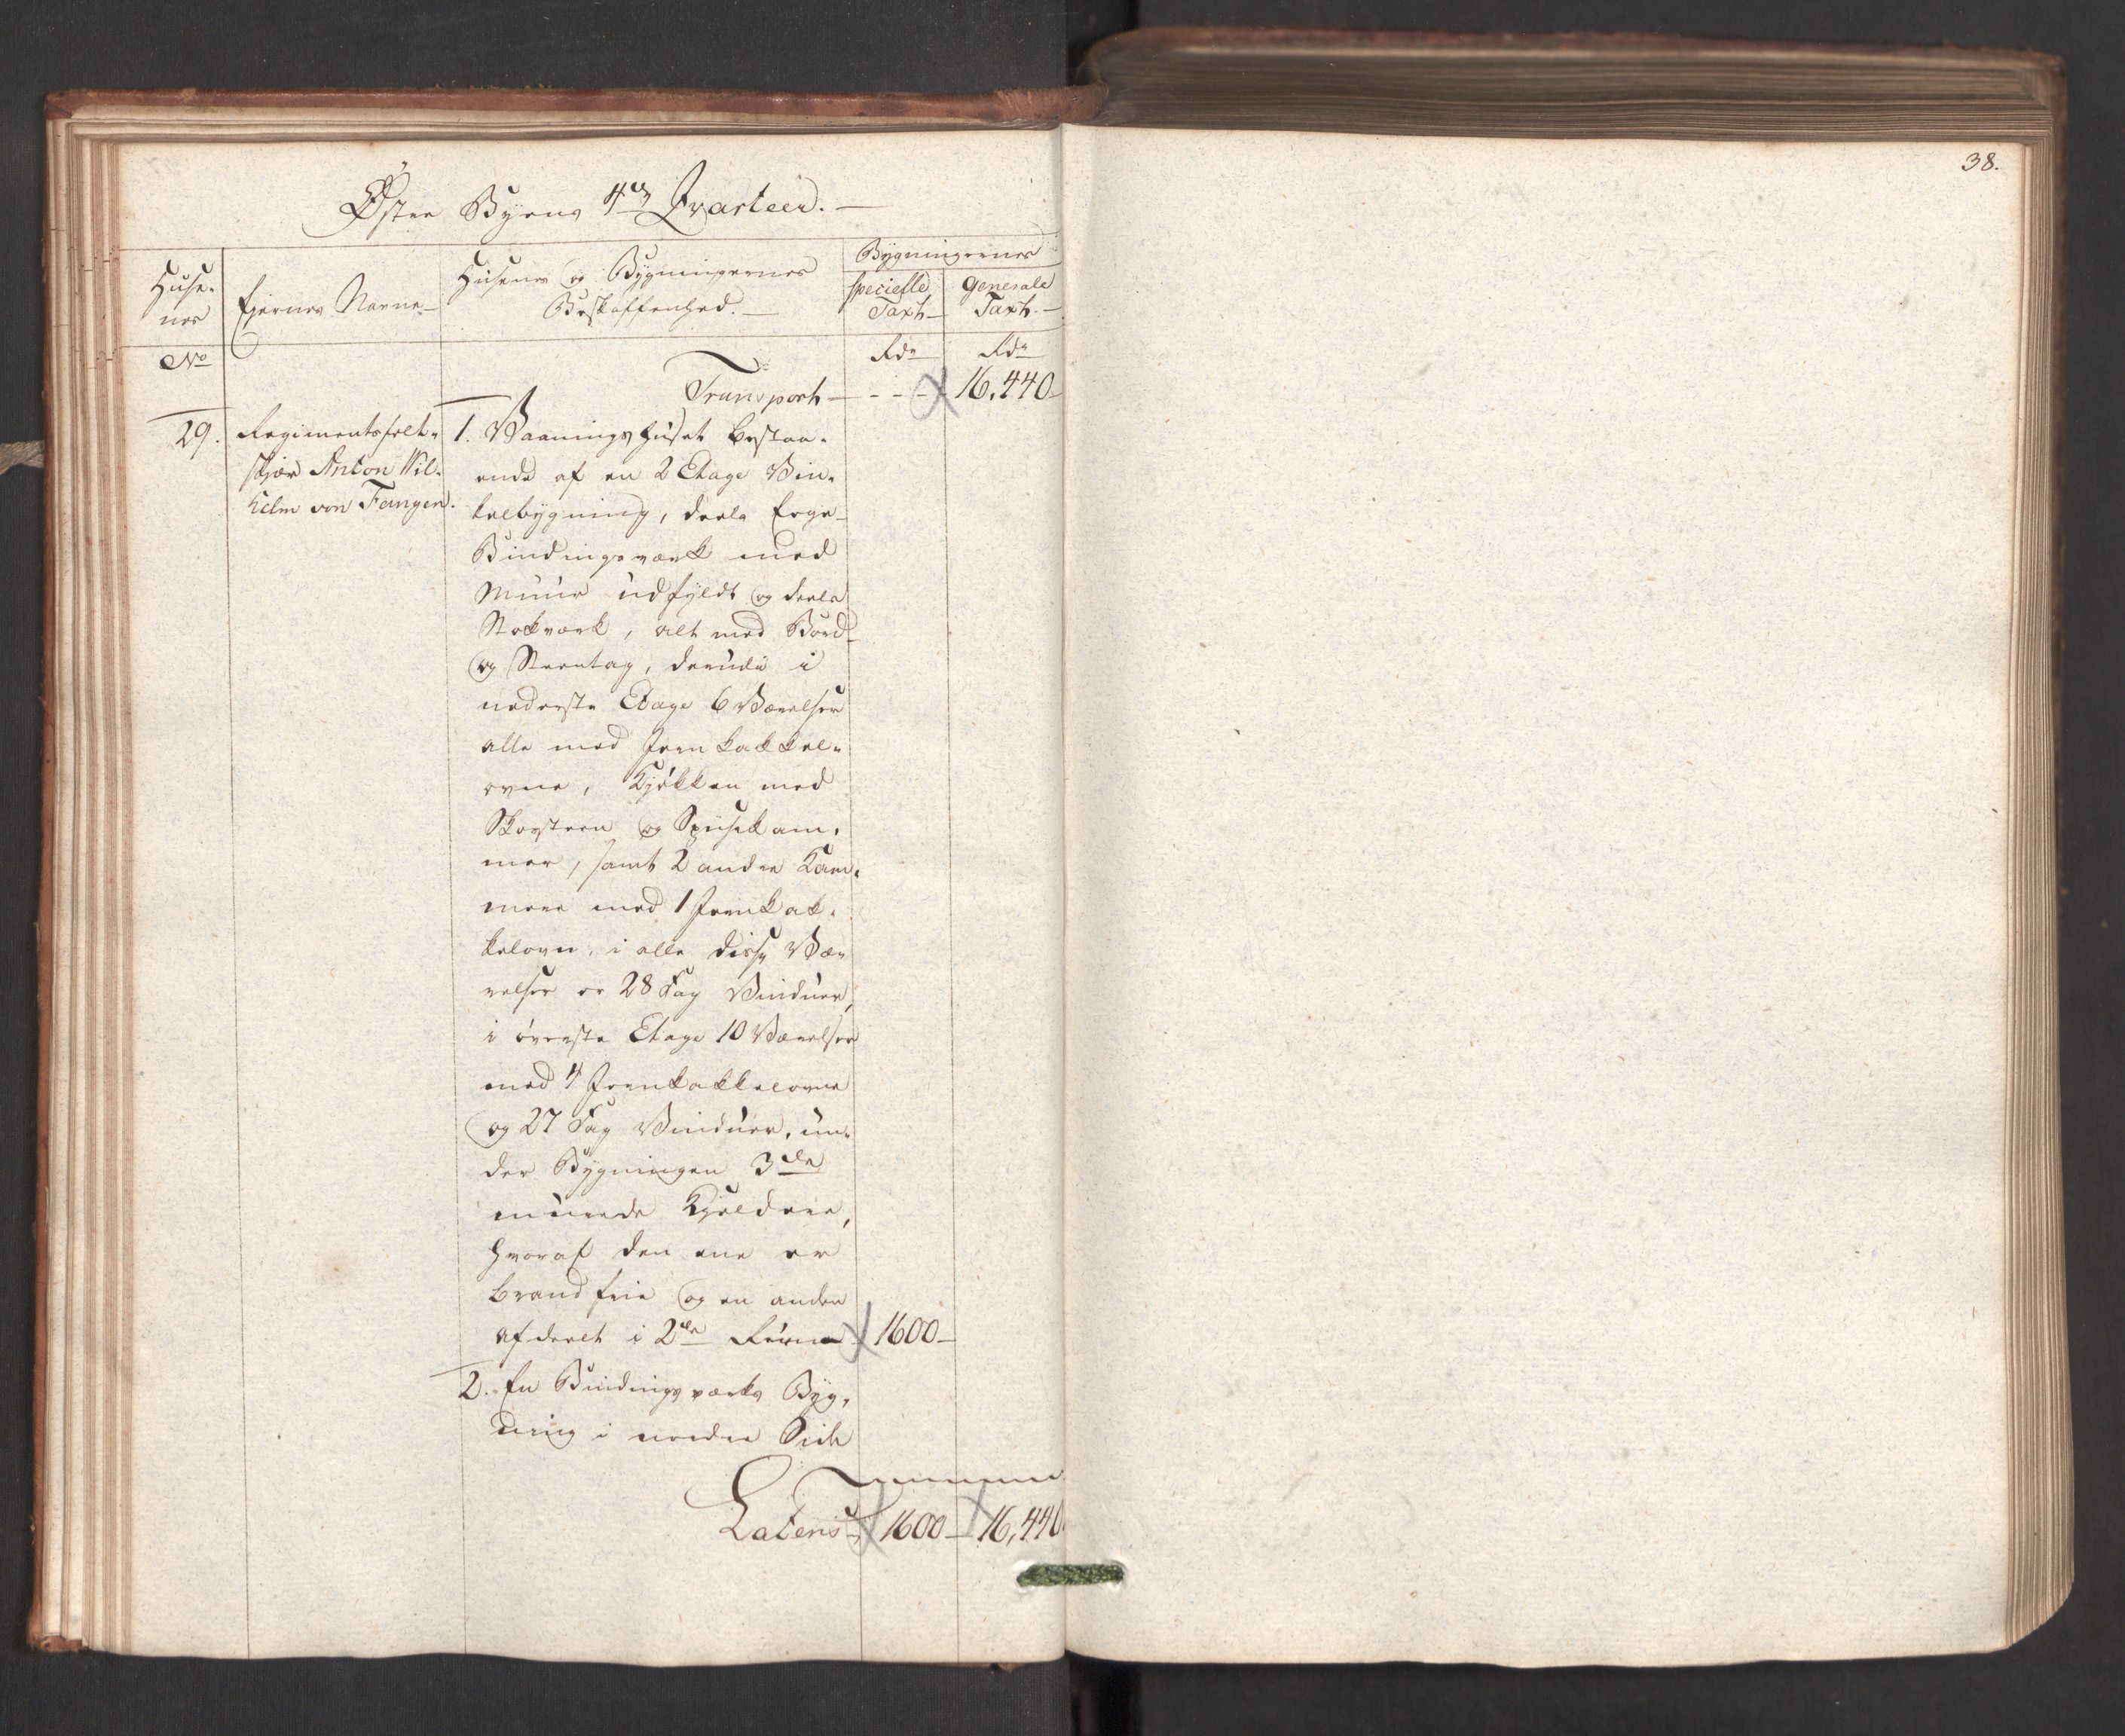 38.
Østre Byens 4de Qvarteer. —
Huse-
nes
No
Ejernes Navne —
Husenes og Bygningernes
Beskaffenhed. —
Bygningernes
specielle
Taxt —
generale
Taxt. —
Rdr
Rdr
Transport — - - - 16,440 -
29.
Regimentsfelt-
skjær Anton Wil-
helm von Fangen.
1. Vaaningshuset bestaa-
ende af en 2 Etage Vin-
kelbygning, deels Ege-
Bindingsværk med
Muur udfyldt og deels
Stokværk, alt med Bord-
og Steentag, derudi i
nederste Etage 6 Værelser
alle med Jernkakkel-
ovne, Kjøkken med
Skorsteen og Spiisekam-
mer, samt 2 andre Kam-
mere med 1 Jernkak-
kelovn, i alle disse Væ-
relser er 28 Fag Vinduer,
i øverste Etage 10 Værelser
med 4 Jernkakkelovne
og 27 Fag Vinduer, un-
der Bygningen 3de
muurede Kjeldere,
hvoraf den ene er
brandfrie og en anden
afdeelt i 2de Rum 1600 —
2. En Bindingsværks Byg-
ning i nordre Side
Lateris 1600 — 16,440